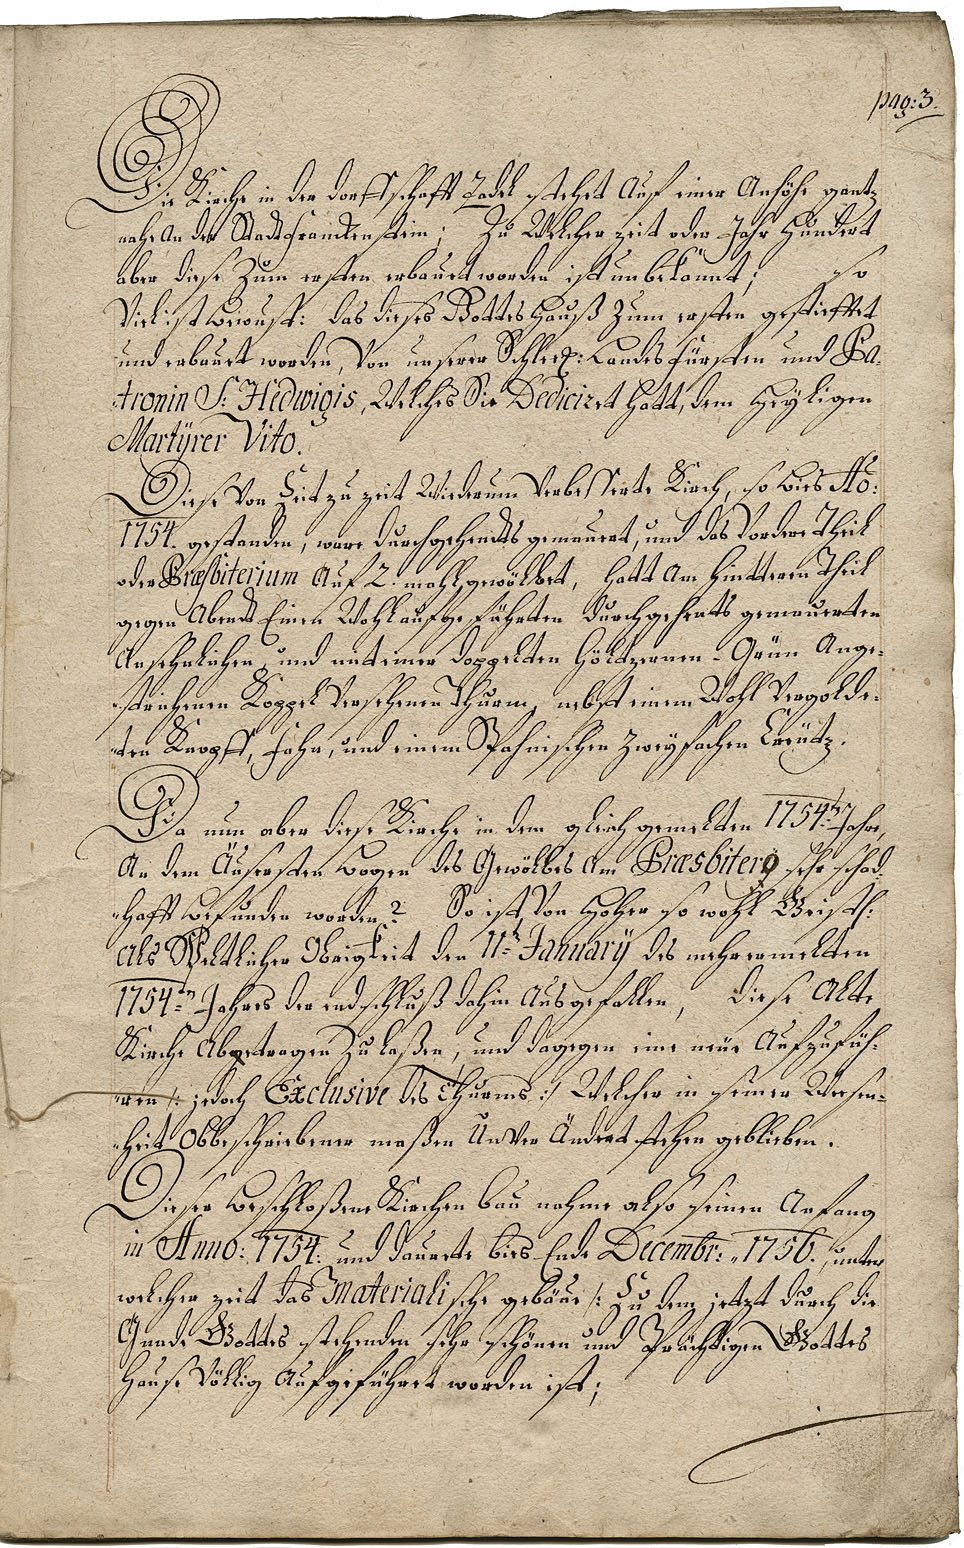 pag: 3.
Die Kirche in der dorffschafft Zadel stehet Auf einer Anhöhe gantz
nahe An der Stadt Franckenstein; Zu Welcher zeit oder Jahr Hundert
aber diese Zum ersten erbauet worden ist unbekannt; so
Viel ist bewust: das dieses Gottes Hauß Zum ersten gestiefftet
und erbauet worden, Von unserer Schles: Landes Fürstin und Pa-
tronin S: Hedwigis, Welches Sie Dediciret hatt, dem Heyligen
Martÿrer Vito.
Diese Von Zeit zu zeit Wiederum Verbesserte Kirch, so bies Ao:
1754. gestanden, ware durchgehends gemauert, und das Vordere Theil
oder Præsbiterium Auf 2. mahl gewölbet, hatt Am Hintteren Theil
gegen Abend Einen Wohl aufgeführten durchgehents gemauerten
Ansehnlichen, und mit einer doppelten höltzernen-Grün Ange-
strichenen Koppel Versehenen Thurm, nebst einem Wohl Vergolde-
ten Knopff, Fahn, und einem Spanischen zweyfachen Creütz.
Da nun aber diese Kirche in dem gleich gemelten 1754ten Jahre,
An dem Äusersten bogen des Gewölbes Am Præsbiterio sehr schad-
hafft befunden worden? So ist Von Hoher so wohl Geistl:
als Weltlicher Obrigkeit den 11ten Januarÿ des mehrermelten
1754ten Jahres der endschluß dahin Ausgefallen, diese Alte
Kirche Abgetragen Zu laßen, und dagegen eine neüe Aufzufüh-
ren /: jedoch Exclusive des Thurms :/ Welcher in seiner Wesen-
heit Obbeschriebener maßen UnVer Ändert stehen geblieben.
Dieser beschloßene Kirchen bau nahme also seinen Anfang
in Anno: 1754. und dauerte bies Ende Decembr: 1756. , unter
welcher zeit das Materialische gebäue /: Zu dem jetzt durch die
Gnade Gottes stehenden sehr schönen und Prächtigen Gottes
Hause Völlig Aufgeführet worden ist;